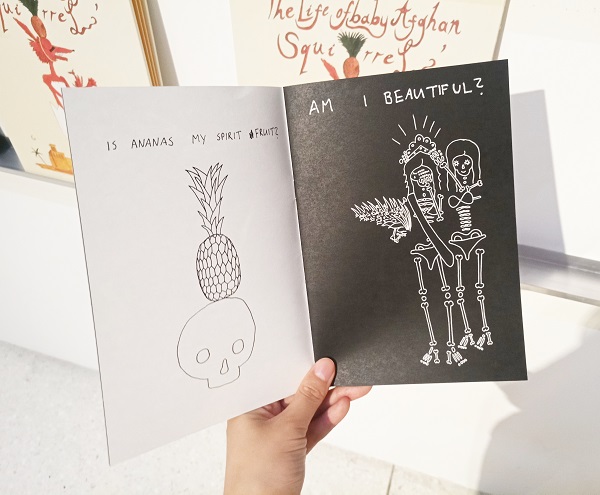 The Life of baby Afghan
Squirrel
IS ANANAS MY SPIRIT FRUIT?
AM I BEAUTIFUL?